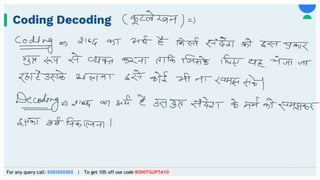 Coding Decoding (कूटलेखन) ⇒
Coding ⇒ शब्द का अर्थ है किसी संदेश को इस प्रकार
गुप्त रूप से व्यक्त करना ताकि जिसके लिए यह भेजा जा
रहा है उसके अलावा इसे कोई भी ना समझ सके।
Decoding ⇒ शब्द का अर्थ है उस गुप्त संदेश के मर्म को समझकर
इसका अर्थ निकालना।
For any query call: 8585858585 | To get 10% off use code ROHITGUPTA10